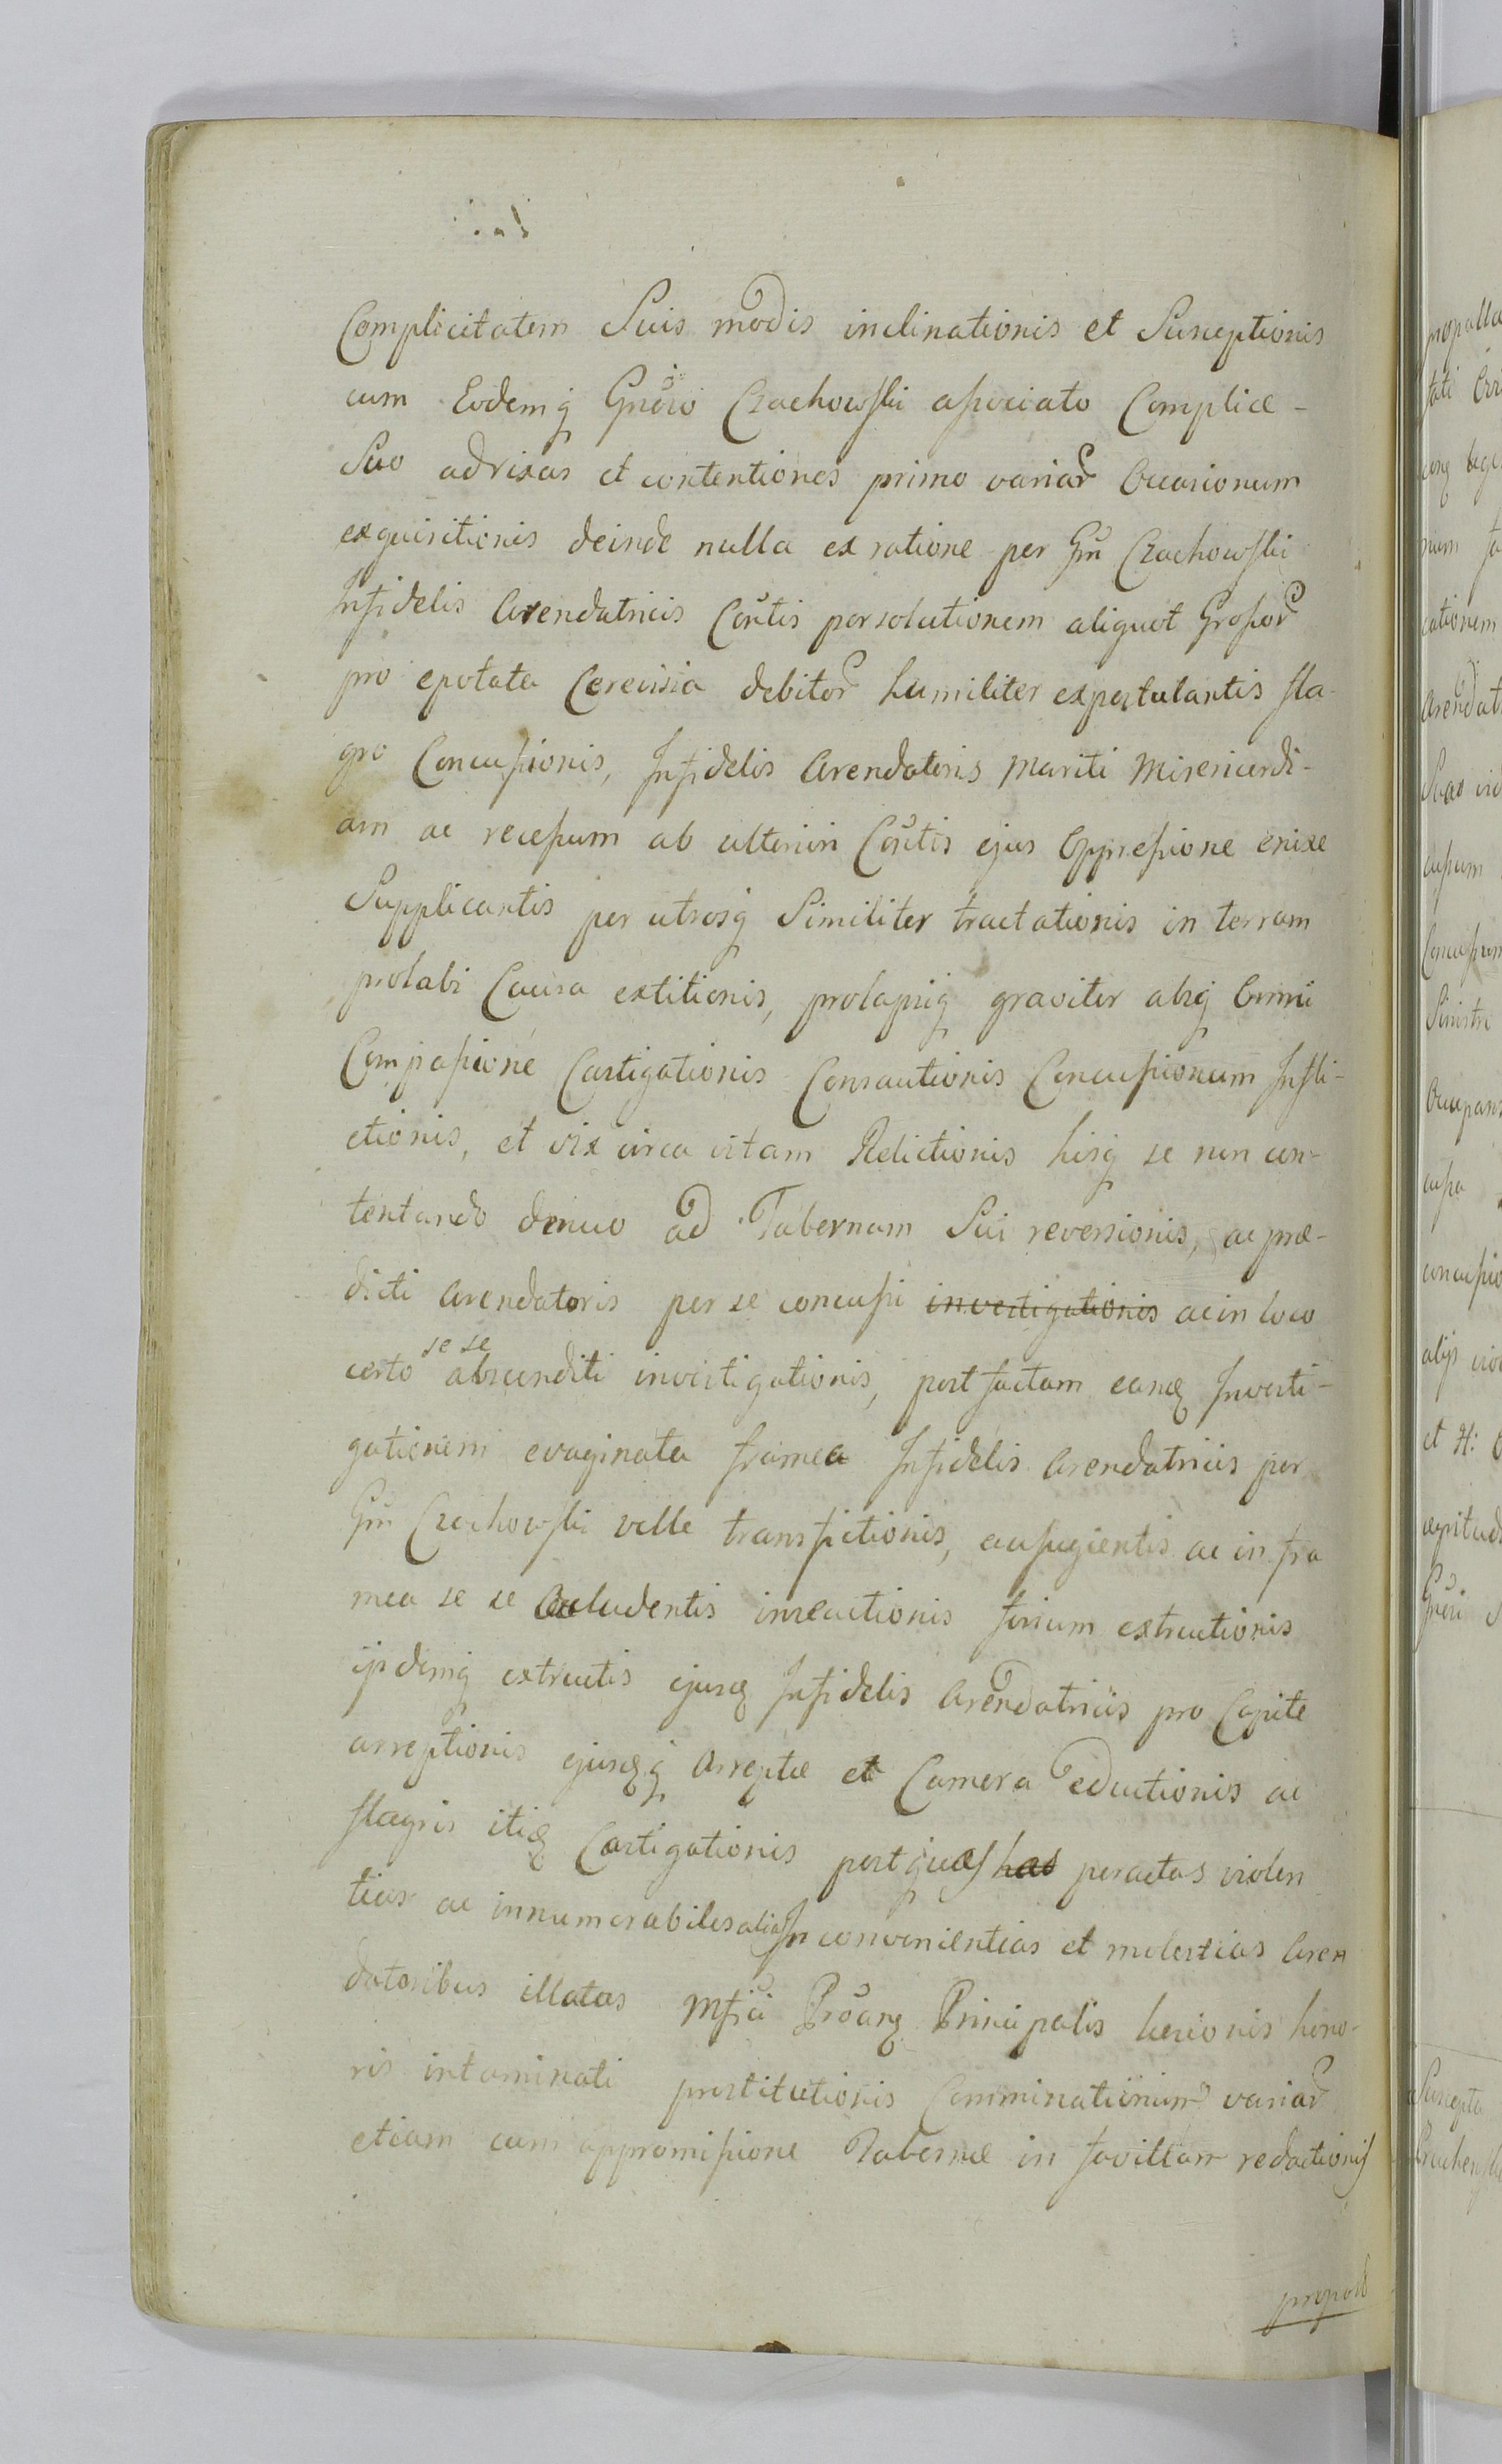 Complicitatem Suis modis inclinationis et Susceptionis
cum Eodemq Gnoso Czachowski associato Complice -
Suo ad rixas et contentiones primo variar Occasionum
exquisitionis deinde nulla ex ratione per Gnm Czachowski
Infidelis Arendatricis Cortis persolutionem aliquot Grossor
pro epotata Cerevisia debitor humiliter expostulantis fla-
gro Concussionis, Infidelis Arendatoris Mariti Misericordi-
am ac recessum ab ulteriori Cortis ejus Oppressione enixe
Supplicantis per utrosq Similiter tractationis in terram
prolabi Causa extitionis, prolapsiq graviter absq Omni
Compassione Castigationis Consautionis Concussionum Infli-
ctionis, et vix circa vitam Relictionis hisq se non con-
tentando denuo ad Tabernam Sui reversionis, ac præ-
dicti Arendatoris per se concussi investigationis ac in loco
certo se se absconditi investigationis, post factam eamq Investi-
gationem evaginata framea Infidelis Arendatricis per
Gnm Czachowski velle transfictionis, aufugientis ac in
mea se se Occludentis insecutionis forium extructionis
ijsdemq extructis ejusq Infidelis Arendatricis pro Capite
arreptionis ejusqq Arreptæ et Camera eductionis ac
flagris itiq Castigationis post quas has peractas violen
tias ac innumerabiles alias Inconvenientias et molestias Aren
datoribus illatas Mfici Proanq Principalis læsionis hono-
ris intaminati prostitutionis Comminationum variar
etiam cum appromissione Tabernæ in favillam redactionis